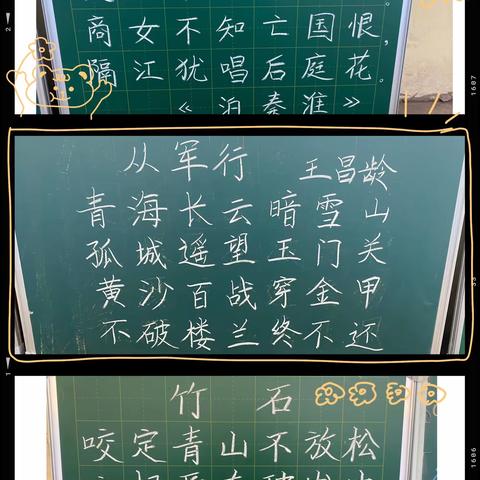 商女不知亡国恨，
隔江犹唱后庭花。
《泊秦淮》
从军行
王昌龄
青海长云暗雪山
孤城遥望玉门关
黄沙百战穿金甲
不破楼兰终不还
竹石
咬定青山不放松
2
1607
33
1
1606